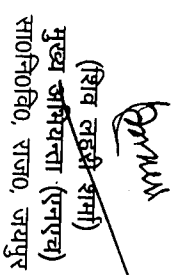 (शिव लहरी शर्मा)
मुख्य अभियन्ता (एनएच)
सा०नि०वि०, राज०, जयपुर